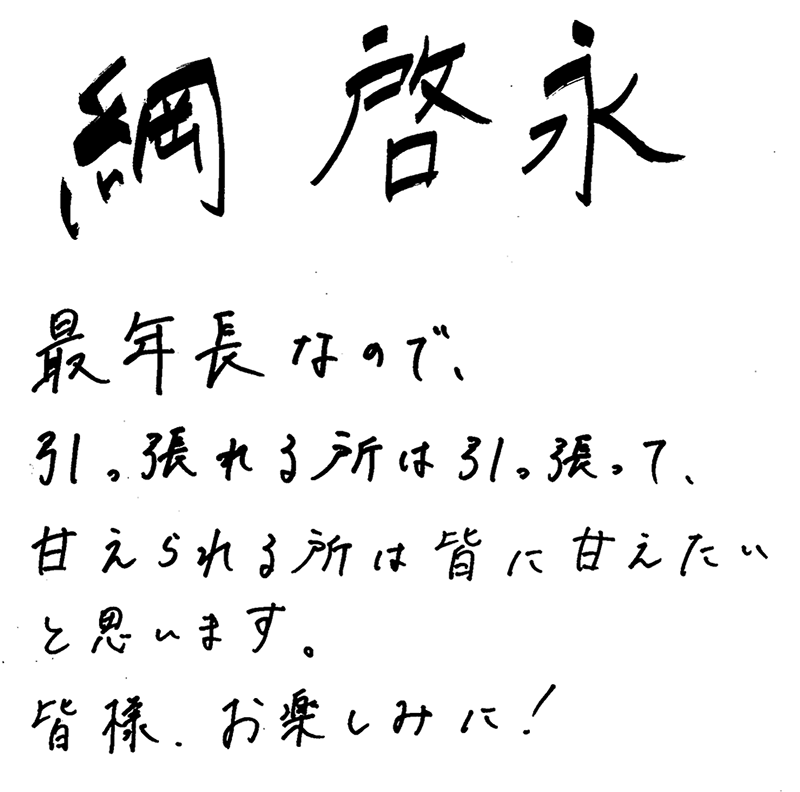 綱 啓永
最年長なので、
引っ張れる所は引っ張って、
甘えられる所は皆に甘えたい
と思います。
皆様、お楽しみに!